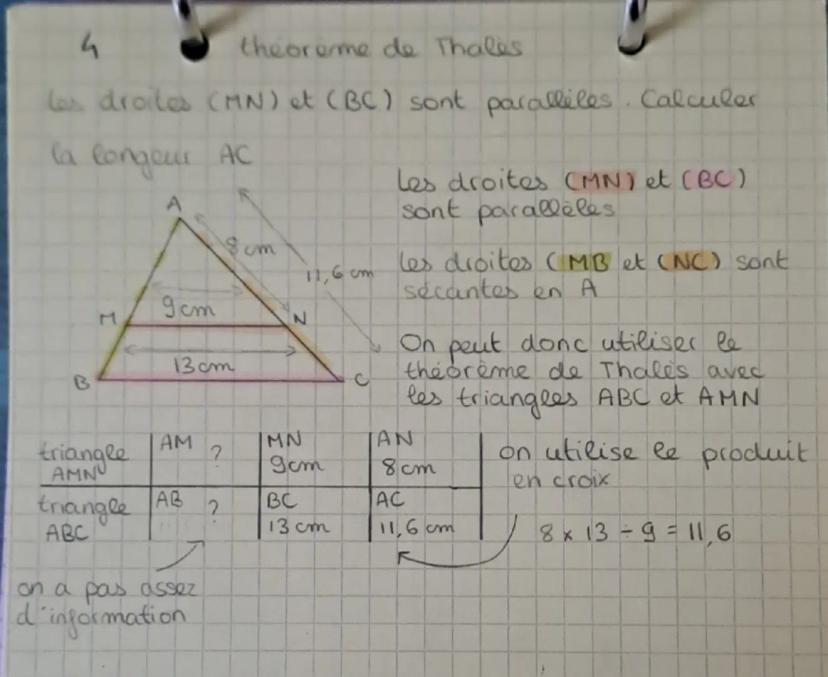 4 théorème de Thalès
Les droites (MN) et (BC) sont parallèles. Calculer
la longeur AC
Les droites (MN) et (BC)
sont parallèles
Les droites (MB et (NC) sont
sécantes en A
On peut donc utiliser le
théorème de Thalès avec
les triangles ABC et AMN
A
8 cm
11,6 cm
9cm
M
N
13cm
B
C
triangle AMN | AM ? | MN 9cm | AN 8cm
triangle ABC | AB ? | BC 13 cm | AC 11,6 cm
on utilise le produit
en croix
8 x 13 ÷ 9 = 11,6
on a pas assez
d'information